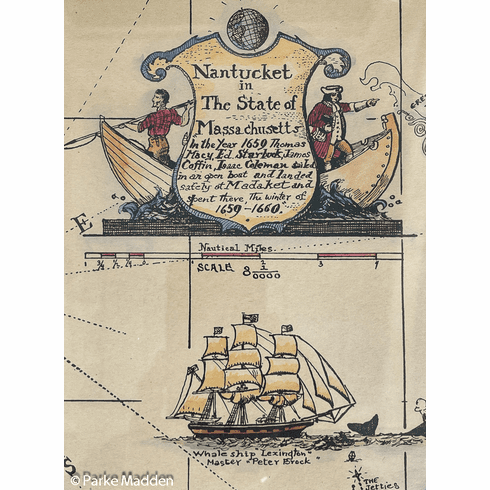 Nantucket
in
The State of
Massachusetts
"In the Year 1659 Thomas
Macy, Ed. Starbuck, James
Coffin, Isaac Coleman sailed
in an open boat and landed
safely at Madaket and
spent there, the winter of
1659-1660."
E
Nautical Miles
SCALE 8 2/3 0000
Whaleship Lexington"
Master "Peter Brock
THE
Jetties
S
© Parke Madden